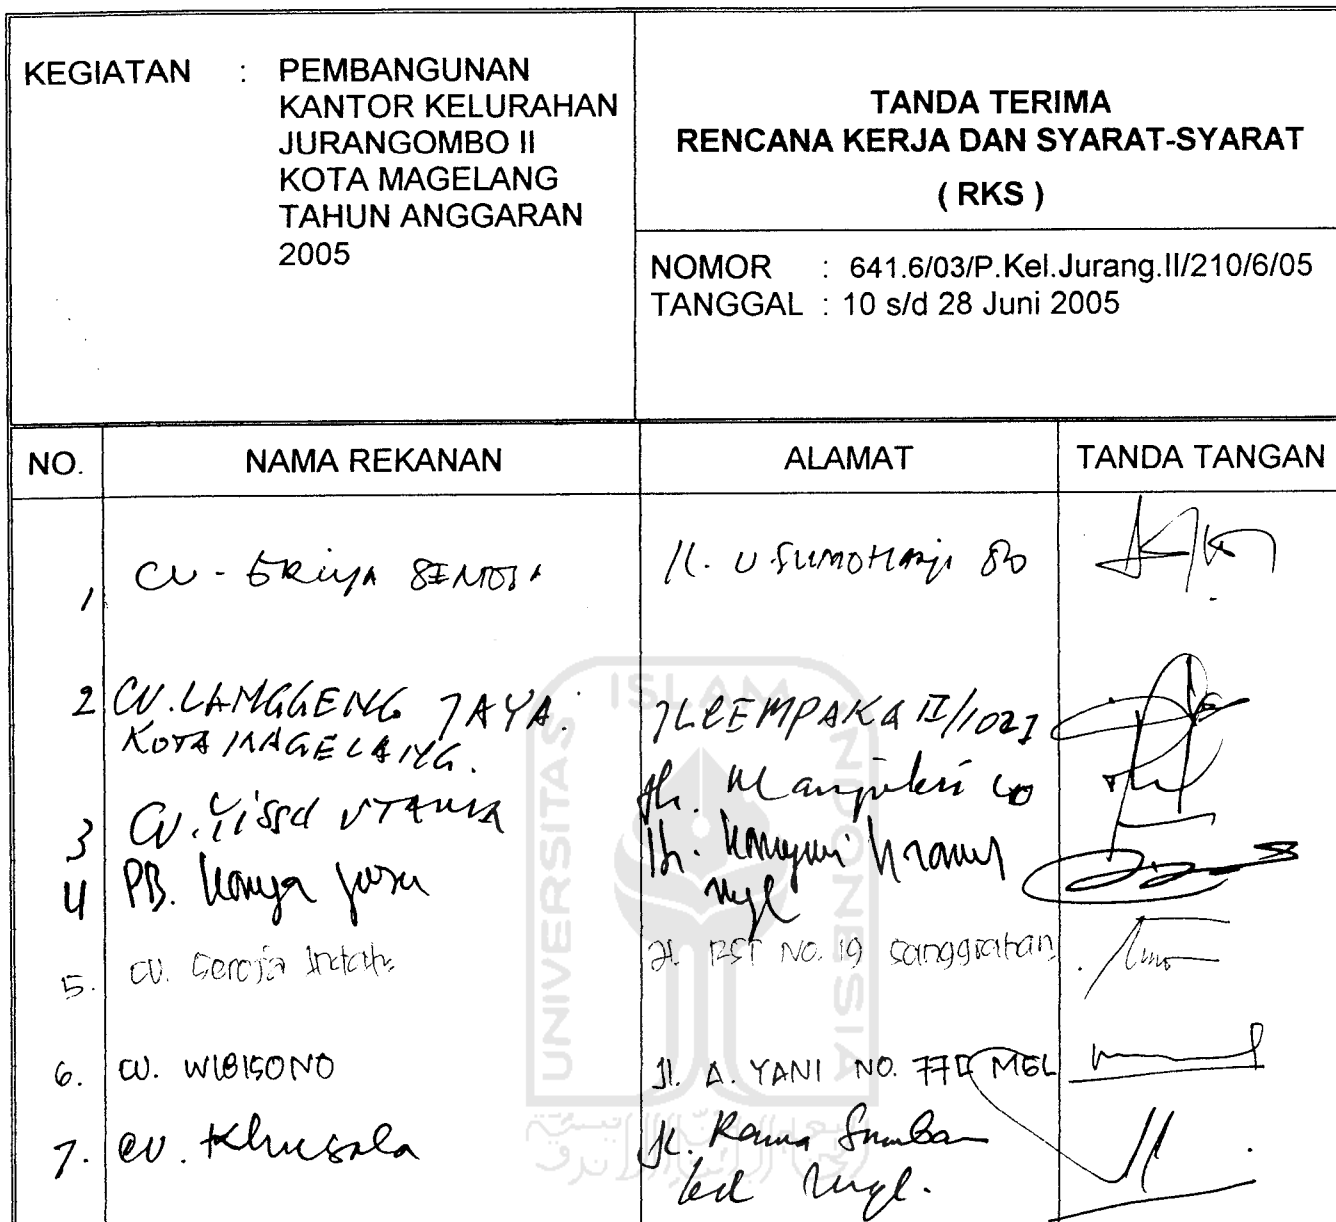 KEGIATAN : PEMBANGUNAN
KANTOR KELURAHAN
JURANGOMBO II
KOTA MAGELANG
TAHUN ANGGARAN
2005
TANDA TERIMA
RENCANA KERJA DAN SYARAT-SYARAT
( RKS )
NOMOR : 641.6/03/P.Kel.Jurang.II/210/6/05
TANGGAL : 10 s/d 28 Juni 2005
NO. NAMA REKANAN ALAMAT TANDA TANGAN
1 CV - Jl. U. SUMOHARJO 80
2 CV. LANGGENG JAYA. JL CEMPAKA II/
KOTA MAGELANG.
3 CV. UTAMA Jl.
4 PB. Karya Jl.
Mgl
5. CV. Seroja Indah Jl. RST NO. 19 Sanggrahan
6. CV. WIBISONO Jl. A. YANI NO. MGL
7. CV. Jl.
Mgl.
UNIVERSITAS ISLAM INDONESIA